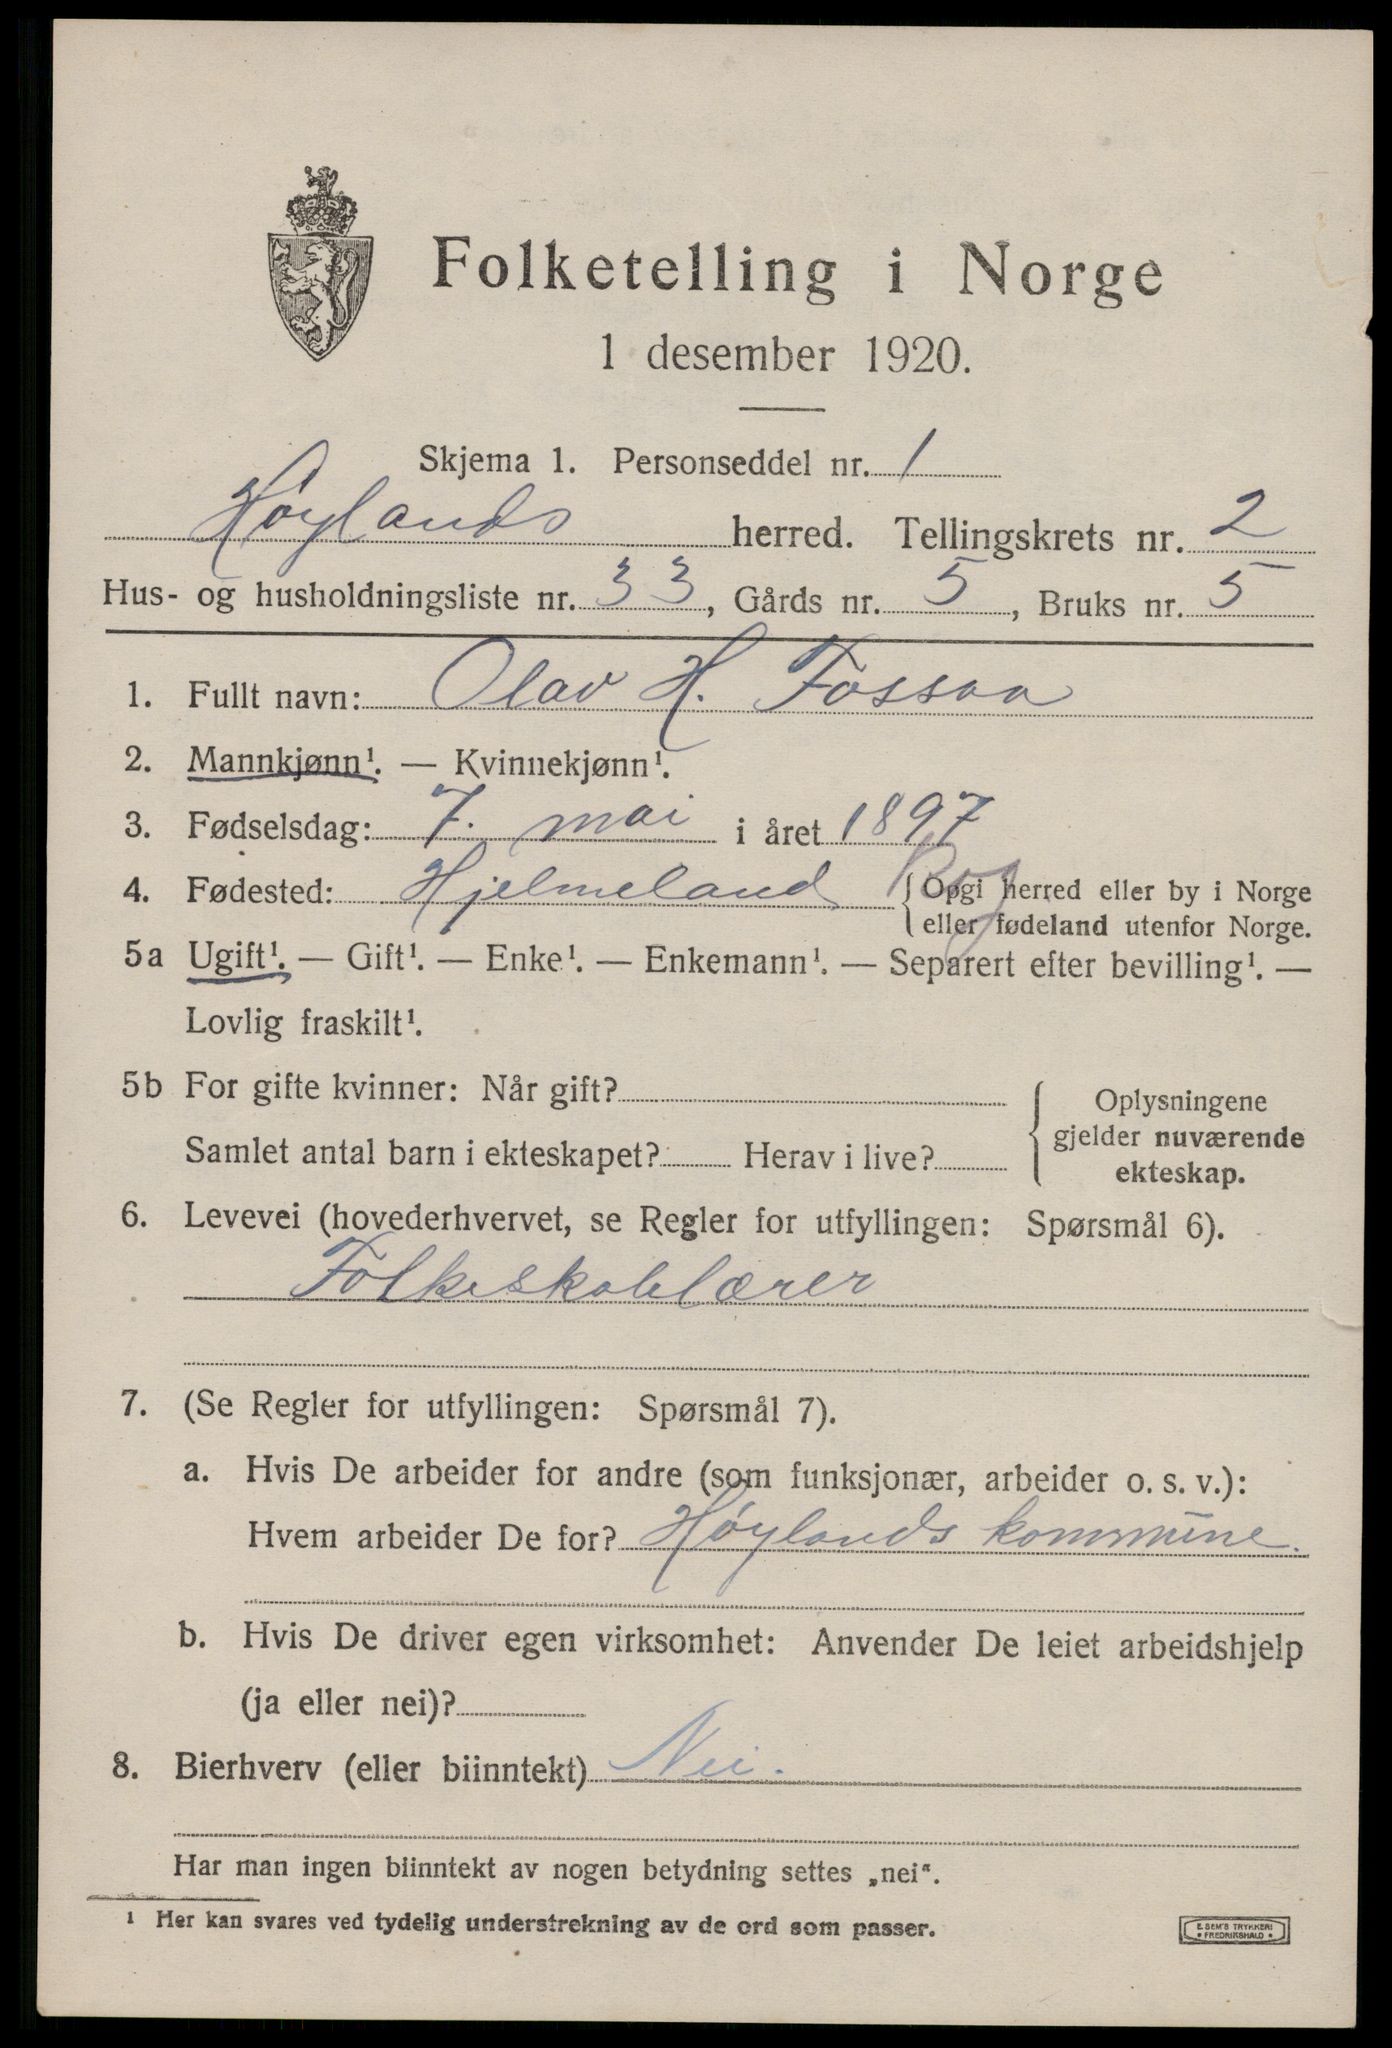 Folketelling i Norge
1 desember 1920.
Skjema 1. Personseddel nr. 1
Høylands herred. Tellingskrets nr. 2
Hus- og husholdningsliste nr. 33, Gårds nr. 5, Bruks nr. 5
1. Fullt navn: Olav H. Fossaa
2. Mannkjønn¹. — Kvinnekjønn¹.
3. Fødselsdag: 7. mai i året 1897
4. Fødested: Hjelmeland Rog { Opgi herred eller by i Norge
eller fødeland utenfor Norge.
5a Ugift¹. — Gift¹. — Enke¹. — Enkemann¹. — Separert efter bevilling¹. —
Lovlig fraskilt¹.
5b For gifte kvinner: Når gift?
Samlet antal barn i ekteskapet? Herav i live?
Oplysningene
gjelder nuværende
ekteskap.
6. Levevei (hovederhvervet, se Regler for utfyllingen: Spørsmål 6).
Folkeskolelærer
7. (Se Regler for utfyllingen: Spørsmål 7).
a. Hvis De arbeider for andre (som funksjonær, arbeider o. s. v.):
Hvem arbeider De for? Høylands kommune.
b. Hvis De driver egen virksomhet: Anvender De leiet arbeidshjelp
(ja eller nei)?
8. Bierhverv (eller biinntekt) Nei.
Har man ingen biinntekt av nogen betydning settes „nei“.
¹ Her kan svares ved tydelig understrekning av de ord som passer.
E. SEM'S TRYKKERI
• FREDRIKSHALD •